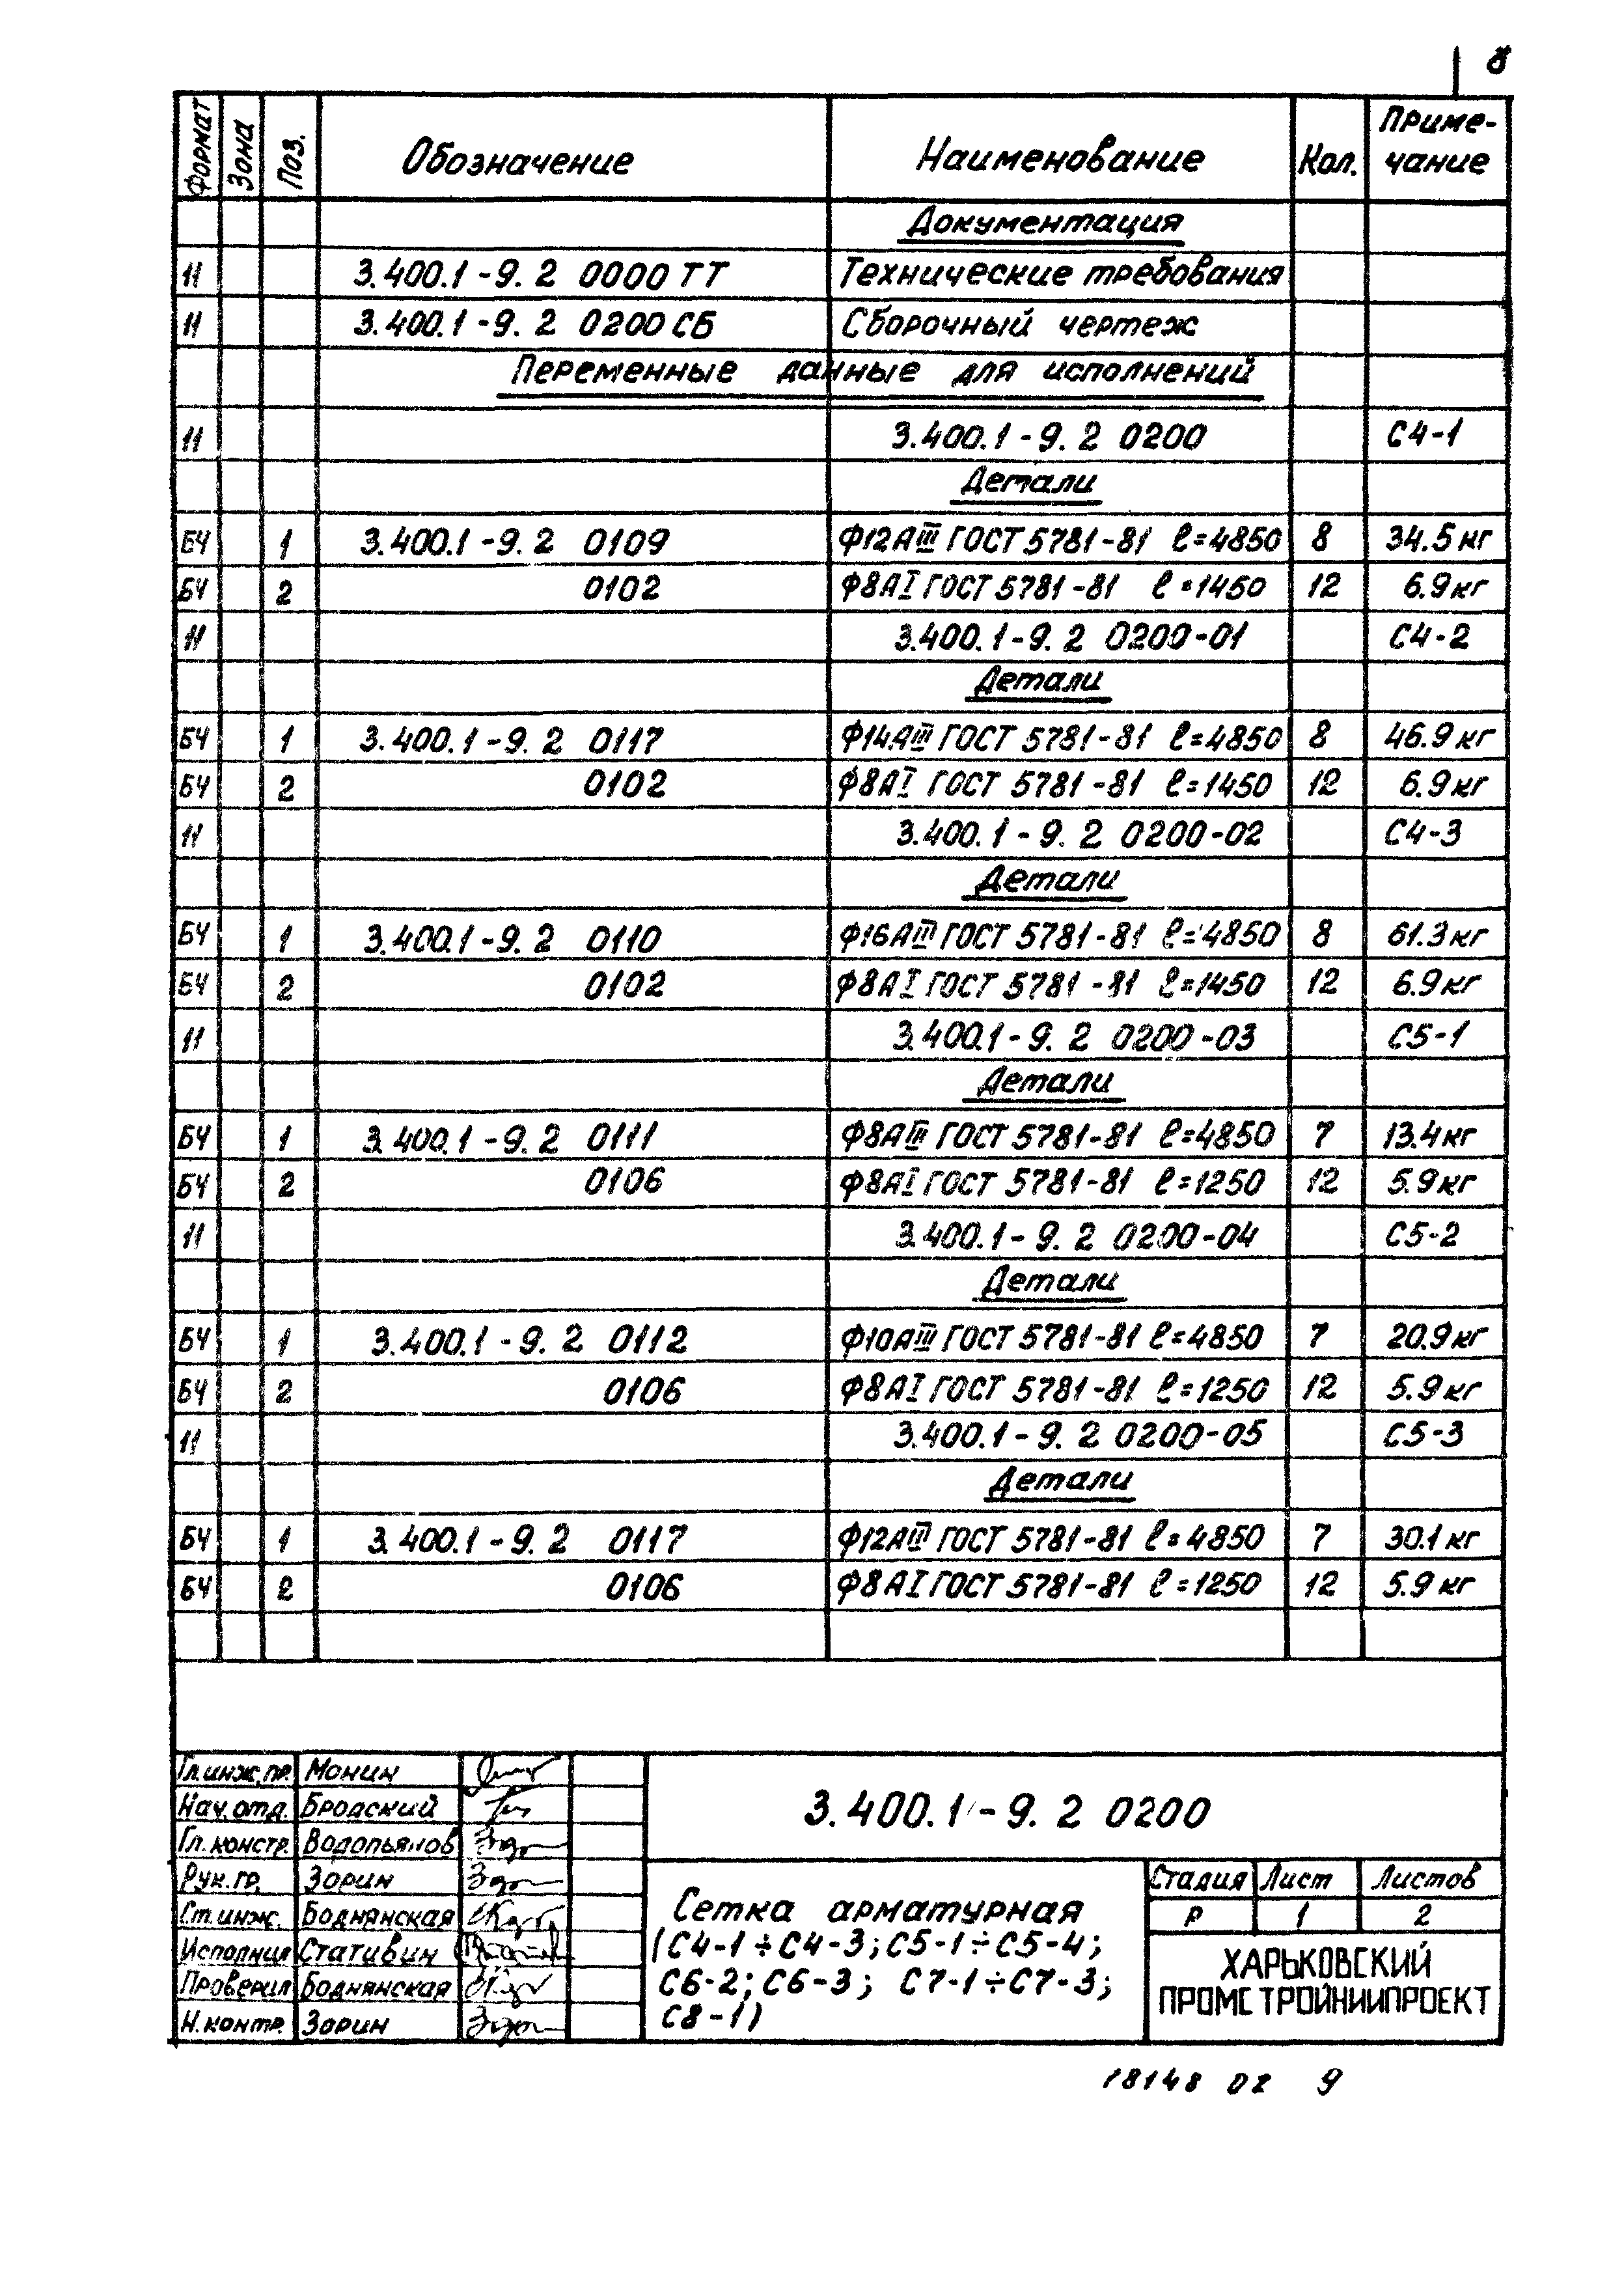 8
Формат Зона Поз. Обозначение Наименование Кол. Приме-
чание
Документация
11 3.400.1-9.2 0000 ТТ Технические требования
11 3.400.1-9.2 0200 СБ Сборочный чертеж
Переменные данные для исполнений
11 3.400.1-9.2 0200 С4-1
Детали
БЧ 1 3.400.1-9.2 0109 Ф12АIII ГОСТ 5781-81 ℓ=4850 8 34.5 кг
БЧ 2 0102 Ф8АI ГОСТ 5781-81 ℓ=1450 12 6.9 кг
11 3.400.1-9.2 0200-01 С4-2
Детали
БЧ 1 3.400.1-9.2 0117 Ф14АIII ГОСТ 5781-81 ℓ=4850 8 46.9 кг
БЧ 2 0102 Ф8АI ГОСТ 5781-81 ℓ=1450 12 6.9 кг
11 3.400.1-9.2 0200-02 С4-3
Детали
БЧ 1 3.400.1-9.2 0110 Ф16АIII ГОСТ 5781-81 ℓ=4850 8 61.3 кг
БЧ 2 0102 Ф8АI ГОСТ 5781-81 ℓ=1450 12 6.9 кг
11 3.400.1-9.2 0200-03 С5-1
Детали
БЧ 1 3.400.1-9.2 0111 Ф8АIII ГОСТ 5781-81 ℓ=4850 7 13.4 кг
БЧ 2 0106 Ф8АI ГОСТ 5781-81 ℓ=1250 12 5.9 кг
11 3.400.1-9.2 0200-04 С5-2
Детали
БЧ 1 3.400.1-9.2 0112 Ф10АIII ГОСТ 5781-81 ℓ=4850 7 20.9 кг
БЧ 2 0106 Ф8АI ГОСТ 5781-81 ℓ=1250 12 5.9 кг
11 3.400.1-9.2 0200-05 С5-3
Детали
БЧ 1 3.400.1-9.2 0117 Ф12АIII ГОСТ 5781-81 ℓ=4850 7 30.1 кг
БЧ 2 0106 Ф8АI ГОСТ 5781-81 ℓ=1250 12 5.9 кг
Гл.инж.пр. Монин
Нач.отд. Бродский
Гл.констр. Водопьянов
Рук.гр. Зорин
Ст.инж. Боднянская
Исполнил Стативин
Проверил Боднянская
Н.контр. Зорин
3.400.1-9.2 0200
Сетка арматурная
(С4-1÷С4-3; С5-1÷С5-4;
С6-2; С6-3; С7-1÷С7-3;
С8-1)
Стадия Лист Листов
Р 1 2
ХАРЬКОВСКИЙ
ПРОМСТРОЙНИИПРОЕКТ
18148 02 9